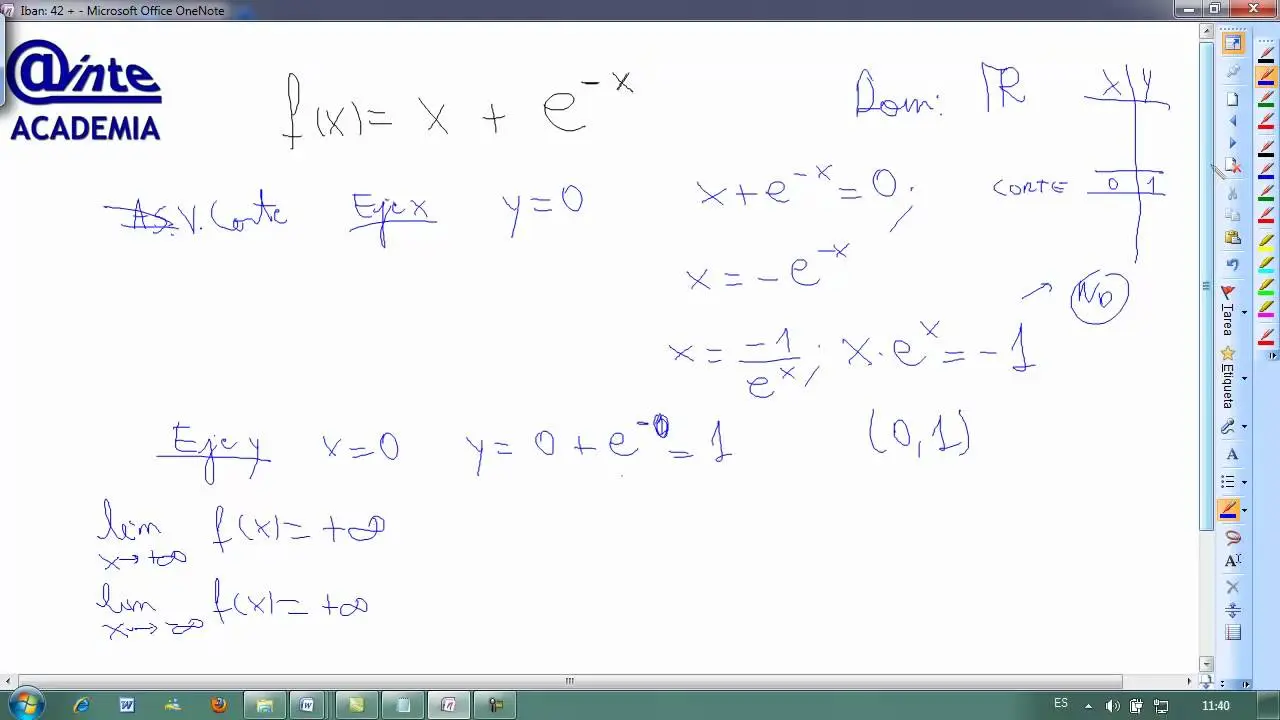 Iban: 42 + - Microsoft Office OneNote
@inte
ACADEMIA
f(x) = x + e^{-x}
Dom: ℝ
X | Y
CORTE 0 | 1
AS. V. Corte Eje x y = 0
x + e^{-x} = 0;
x = -e^{-x}
x = -1/e^x ; x · e^x = -1 → No
Eje y x = 0 y = 0 + e^{-0} = 1 (0,1)
lim x→+∞ f(x) = +∞
lim x→-∞ f(x) = +∞
Tarea
Etiqueta
ES 11:40